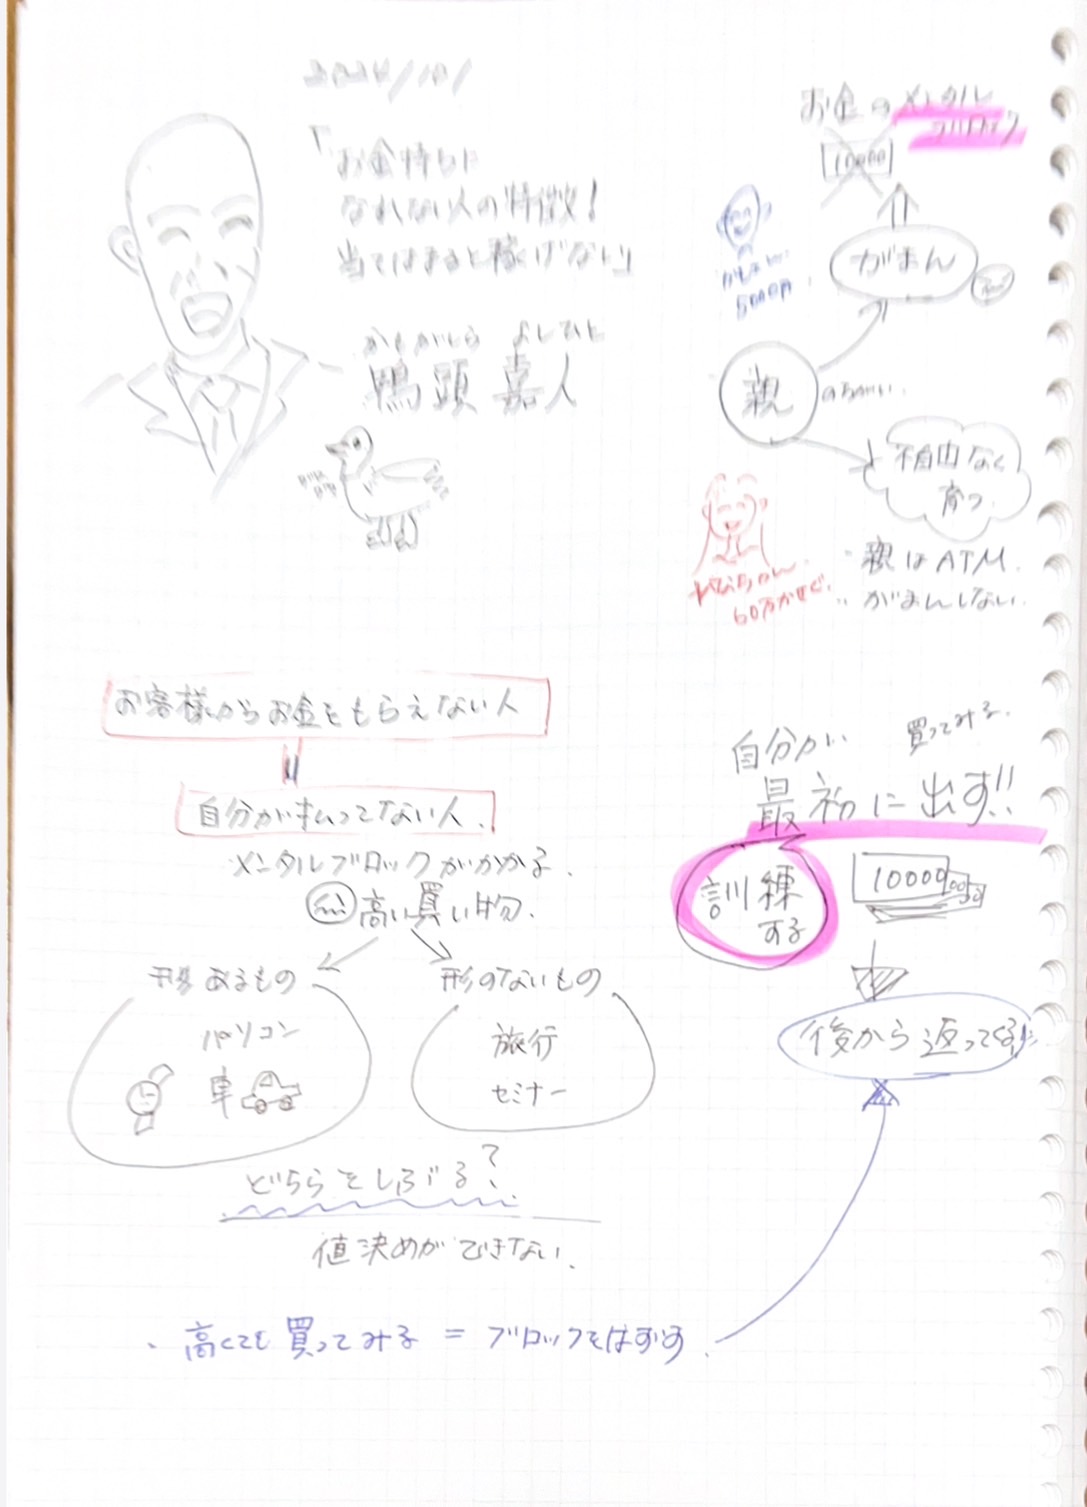 2024/10/
「お金持ちに
なれない人の特徴!
当てはまると稼げない」
かもがしら よしひと
鴨頭 嘉人
お金のメンタル
ブロック
10000
がまん
5000円
親
のちがい.
不自由なく
育つ.
60万かせぐ.
・親はATM.
がまんしない.
お客様からお金をもらえない人
自分が払ってない人.
メンタルブロックがかかる.
高い買い物.
形あるもの
パソコン
車
形のないもの
旅行
セミナー
どちらをしぶる?
値決めができない.
・高くても買ってみる = ブロックをはずす.
自分が
買ってみる.
最初に出す!!
訓練
する
10000
後から返ってくる!